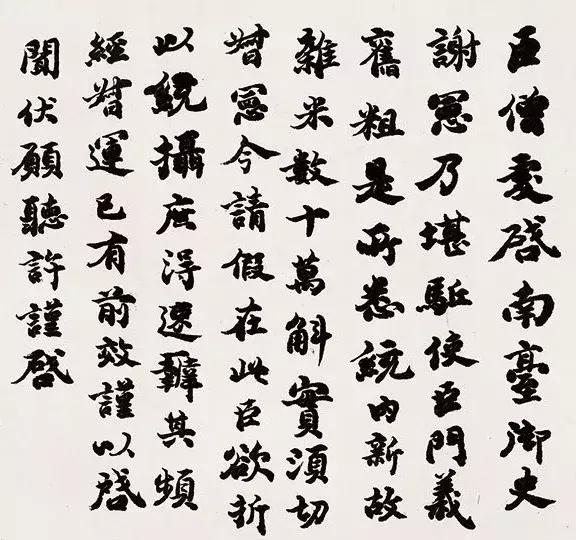 臣僧虔啓南臺御史
謝憲乃堪駈使臣門義
舊粗是所悉統内新故
雜米數十萬斛實須切
督憲今請假在此臣欲折
以統攝庶得速辦其頻
經督運已有前效謹以啓
聞伏願聽許謹啓